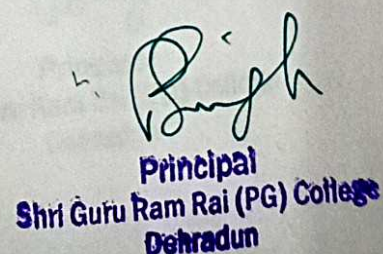 Singh
Principal
Shri Guru Ram Rai (PG) College
Dehradun